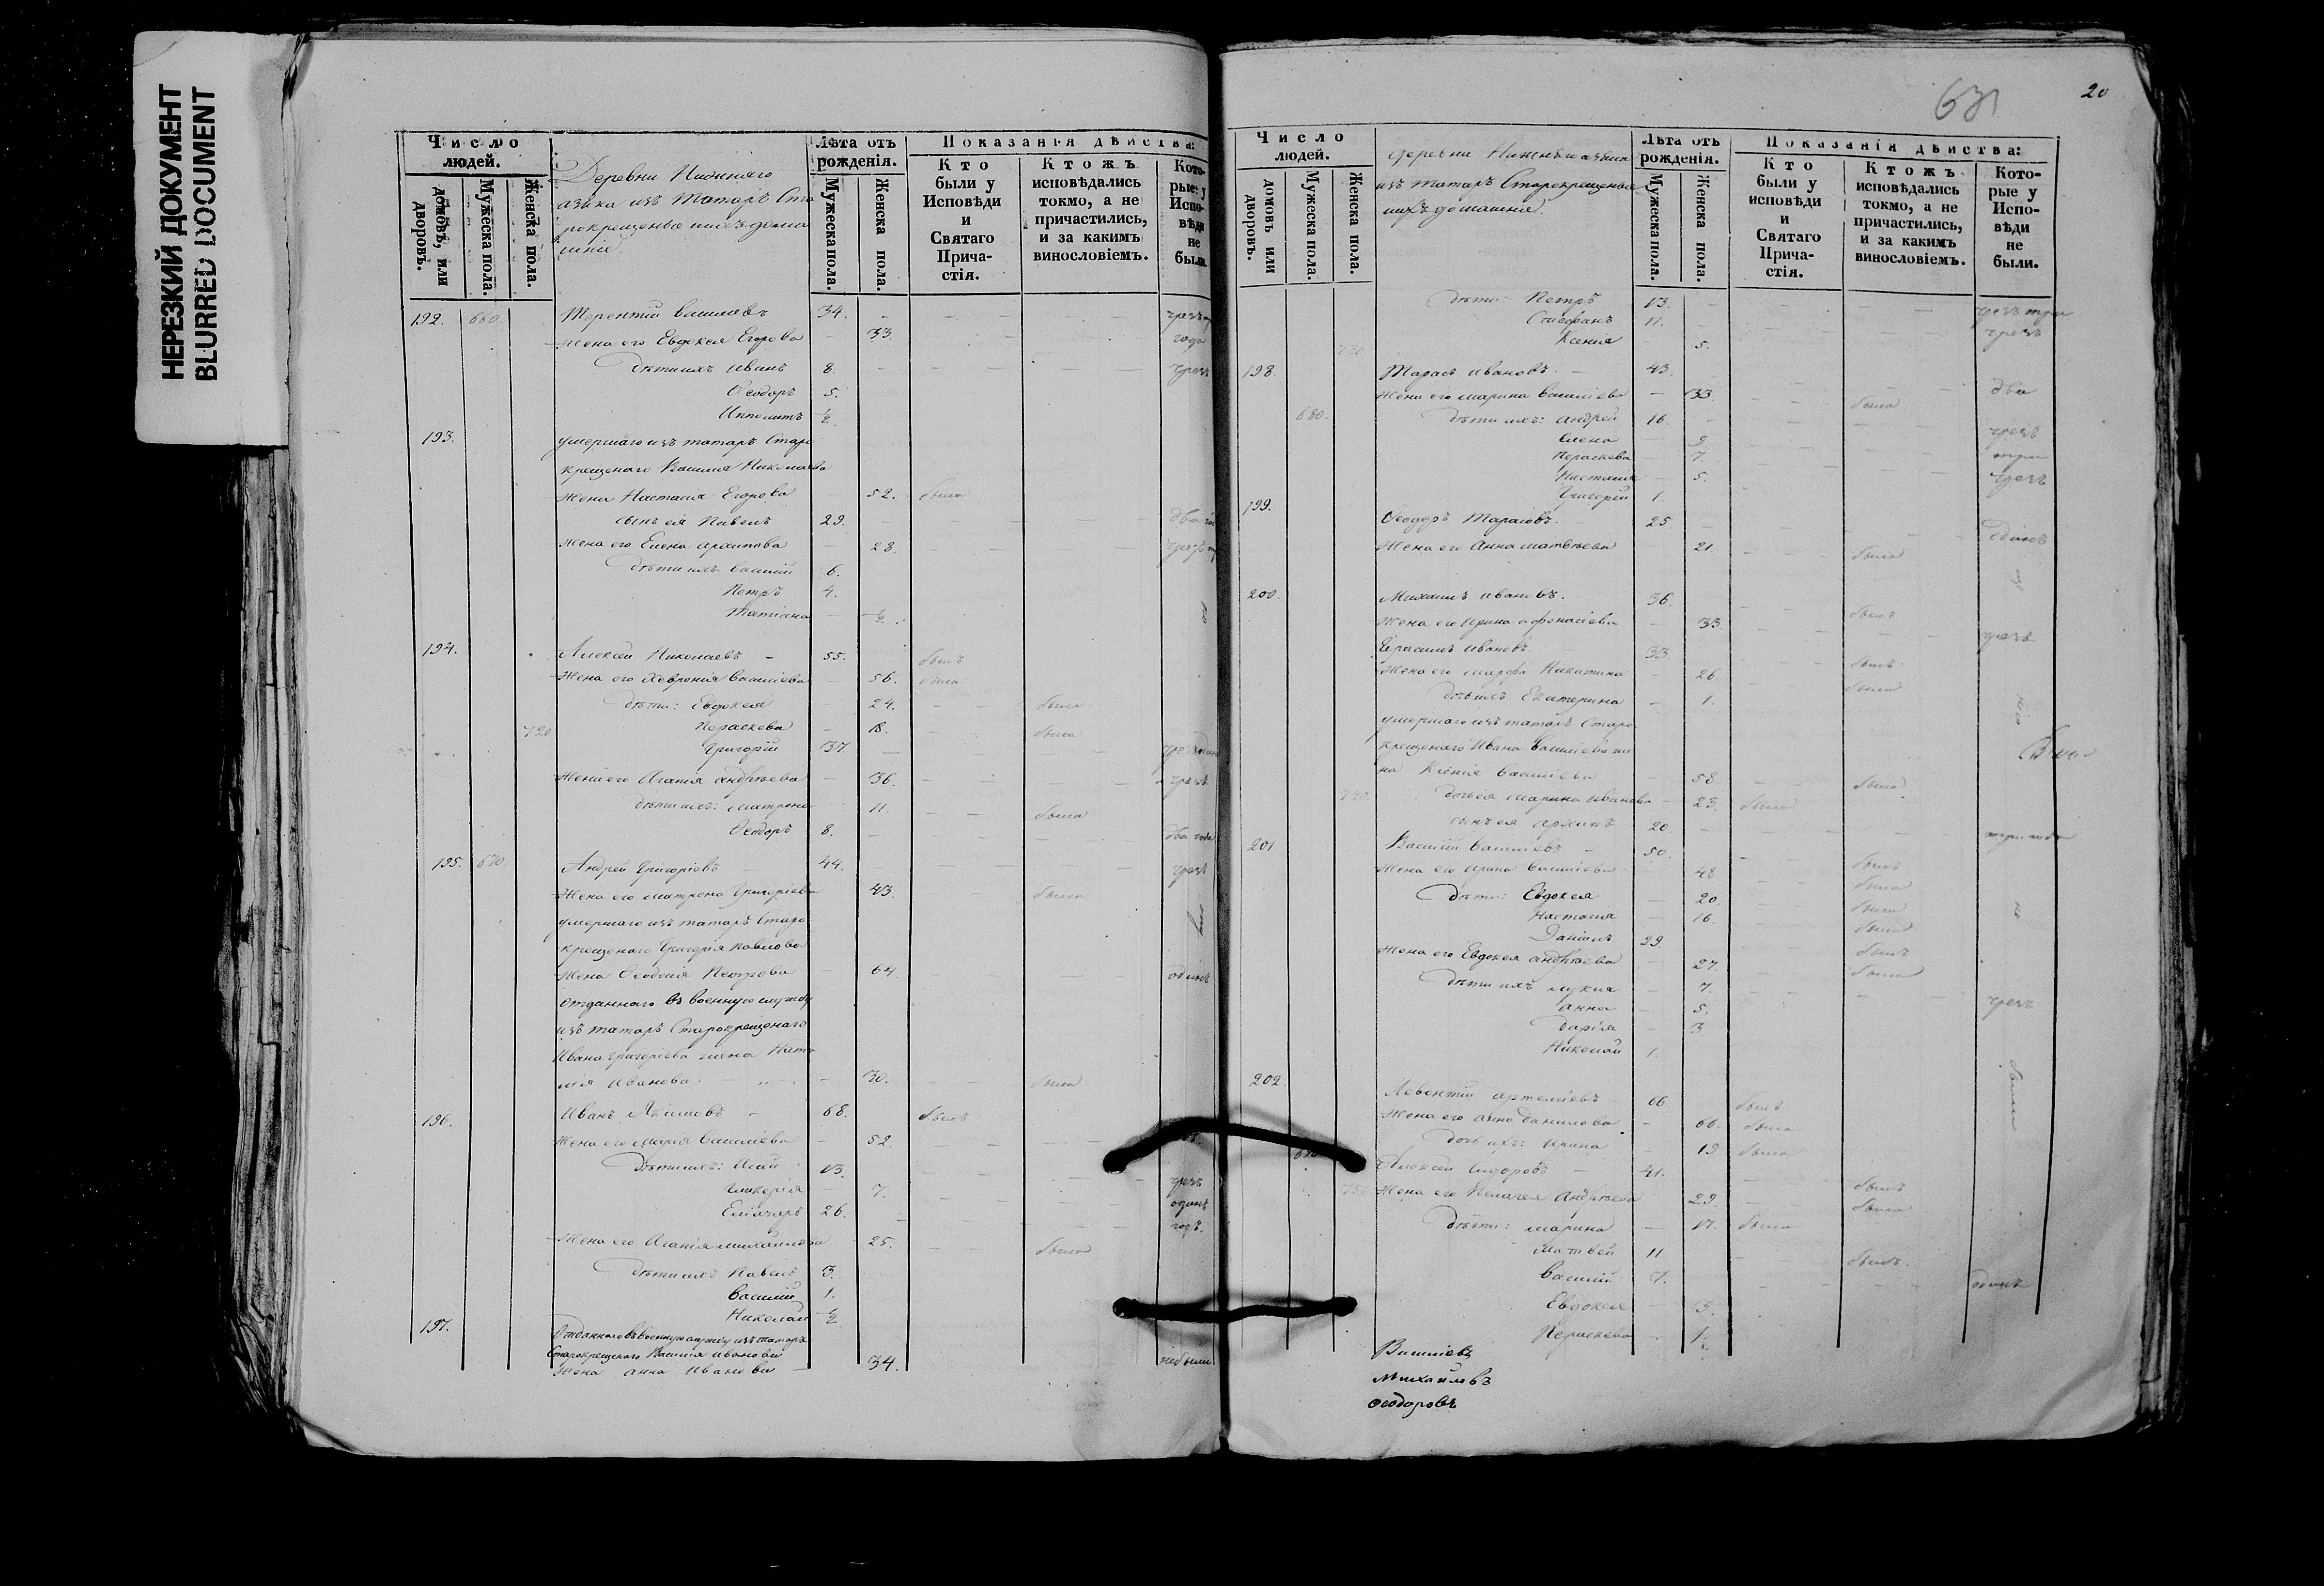 НЕРЕЗКИЙ ДОКУМЕНТ
BLURRED DOCUMENT
Число людей.
домовъ, или дворовъ.
Мужеска пола.
Женска пола.
Деревни
азяка изъ Татаръ Ста
рокрещеные и ихъ дома
шніе.
Лѣта отъ рожденія.
Мужеска пола.
Женска пола.
Показанія дѣйства:
Кто были у Исповѣди и Святаго Прича-стія.
Ктожъ исповѣдались токмо, а не причастились, и за какимъ винословіемъ.
Кото-рые у Испо-вѣди не были.
192. 660. Терентій Васильевъ 34.
Жена его Евдокея Егорова 33. года
Дѣти ихъ Иванъ 8.
Ѳеодоръ 5.
Ипполитъ ½
193. умершаго изъ татаръ Старо
крещенаго Василія Николаева
жена Настасія Егорова 52. была
сынъ ея Павелъ 29.
Жена его Елена Архипова 28.
Дѣти ихъ: Василій 6.
Петръ 4.
Татіана ½
194. Алексей Николаевъ 55. былъ
Жена его Хеврония Васильева 56. была
Дѣти: Евдокея 24. была
720 Параскева 18. была
Григорій 37.
Жена его Агапія Андреева 36. чрезъ
Дѣти ихъ: Матрона 11. была
Ѳеодоръ 8. два года
195. 670. Андрей Григоріевъ 44. чрезъ
Жена его Матрена Григорьева 43. была
умершаго изъ татаръ Старо
крещенаго Григорія Павлова
жена Ѳеодосія Петрова 64. одинъ
Отданнаго въ военную службу
изъ татаръ Старокрещенаго
Ивана Григорьева жена Ната
лія Иванова 30. была
196. Иванъ Якимовъ 68. былъ
Жена его Марія Васильева 52.
Дѣти ихъ: Исай 13.
Гликерія 7. чрезъ
Елиазаръ 26. одинъ
годъ.
Жена его Агапія Михайлова 25. была
Дѣти ихъ Павелъ 3.
Василій 1.
Николай ½
197. Отданнаго въ военную службу изъ татаръ
Старокрещенаго Василія Иванова
жена Анна Иванова 34. не были
631
20
Число людей.
домовъ или дворовъ.
Мужеска пола.
Женска пола.
Деревни
изъ татаръ Старокрещеные
и ихъ домашніе.
Лѣта отъ рожденія.
Мужеска пола.
Женска пола.
Показанія дѣйства:
Кто были у исповѣди и Святаго Прича-стія.
Ктожъ исповѣдались токмо, а не причастились, и за какимъ винословіемъ.
Кото-рые у Испо-вѣди не были.
Дѣти: Петръ 13. чрезъ три
Стефанъ 11. чрезъ
730 Ксения 5.
198. Тарасъ Ивановъ 43.
Жена его Марина Васильева 33. была два
680. Дѣти ихъ: Андрей 16.
Елена 9. чрезъ
Параскева 7. три
Настасия 5. чрезъ
Григорій 1.
199. Ѳеодоръ Тарасовъ 25. одинъ
Жена его Анна Матвѣева 21. была
200. Михаилъ Ивановъ 36. былъ
Жена его Ирина Афонасіева 33. чрезъ
Герасимъ Ивановъ 33. былъ
Жена его Марфа Никитина 26. была
дочь ихъ Екатерина 1.
умершаго изъ татаръ Старо
крещенаго Ивана Васильева же
на Ксения Васильева 58. была
740. дочь ея Марина Иванова 23. была
сынъ ея Архипъ 20. три года
201 Василій Васильевъ 50. былъ
Жена его Ирина Васильева 48 была
Дѣти: Евдокея 20. была
Настасия 16. была
Даніилъ 29 былъ
Жена его Евдокея Андреева 27. была
Дѣти ихъ Лукия 7. чрезъ
Анна 5.
Дарія 3
Николай 1
202. Левонтій Артеміевъ 66 былъ
Жена его Анна Данилова 66. была
дочь ихъ: Ирина 19 была
Алексей Сидоровъ 41. былъ
750 Жена его Пелагея Андреева 29. была
Дѣти: Марина 17. была
Матвей 11 былъ.
Василій 7.
Евдокея 3.
Параскева 1.
Васильевъ
Михайловъ
Ѳеодоровъ